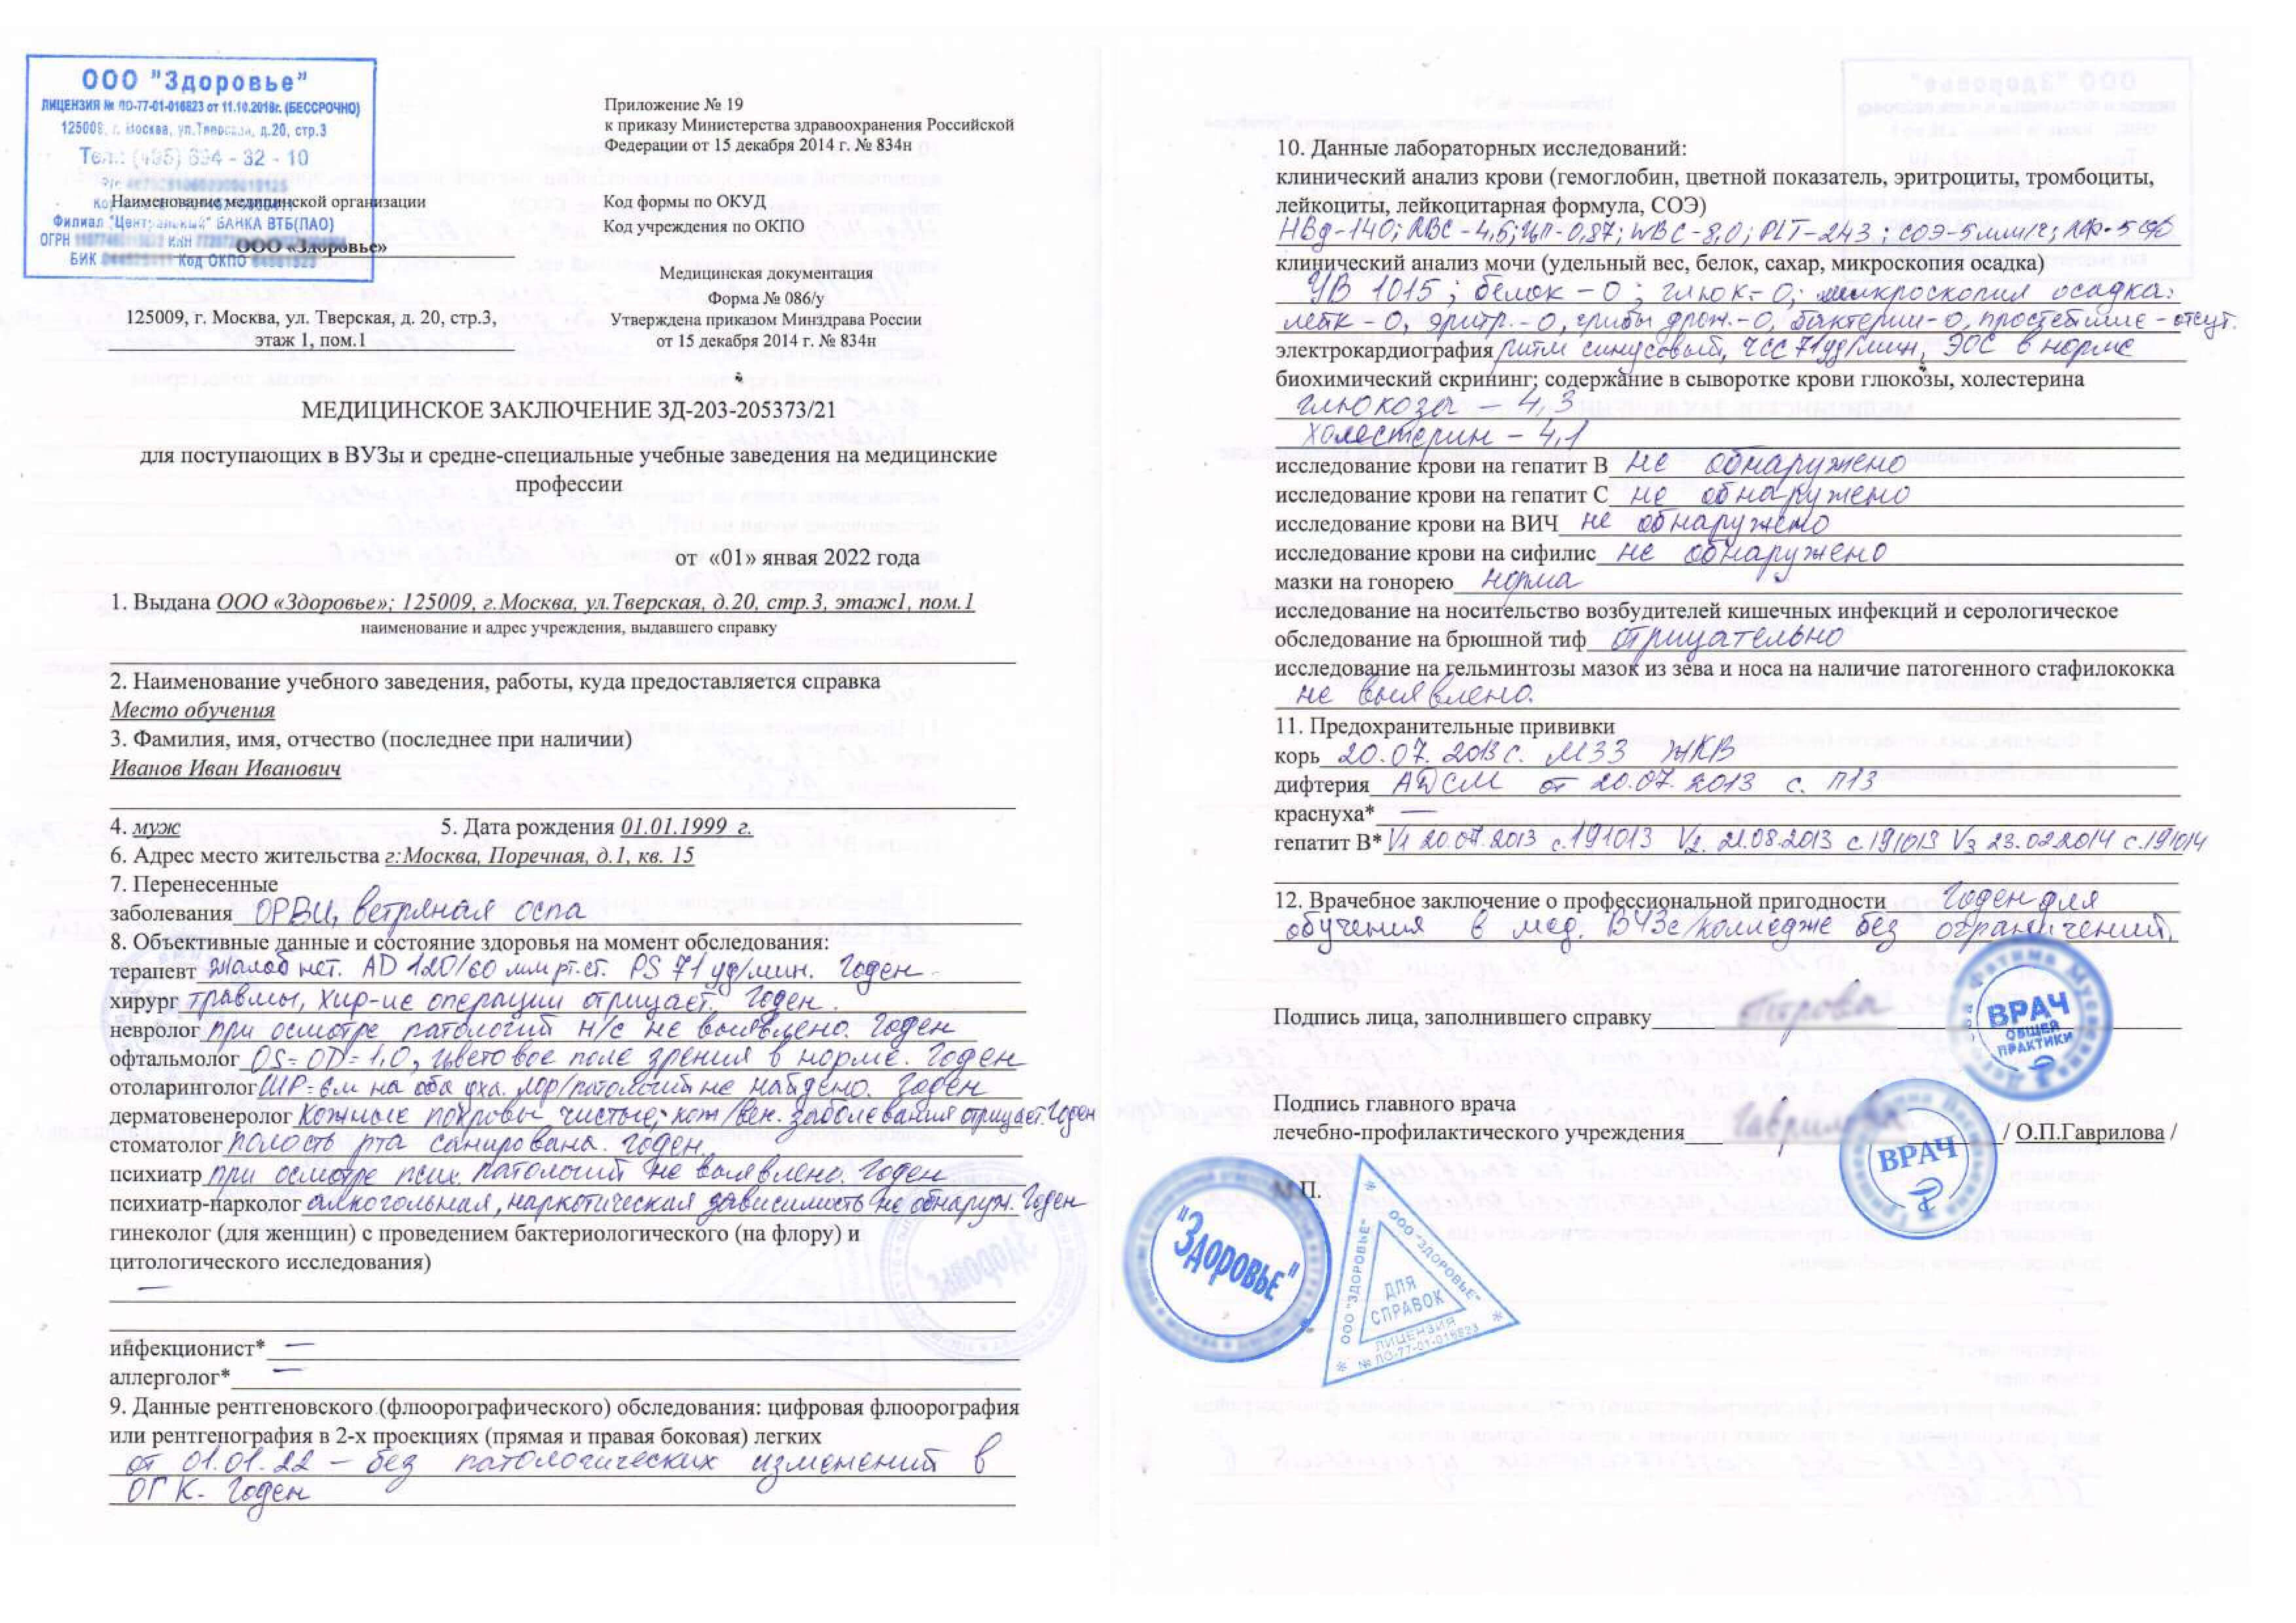 ООО "Здоровье"
ЛИЦЕНЗИЯ № ЛО-77-01-016823 от 11.10.2018г. (БЕССРОЧНО)
125009, г. Москва, ул.Тверская, д.20, стр.3
Тел.: (495) 694 - 32 - 10
Филиал "Центральный" БАНКА ВТБ(ПАО)
ОГРН
БИК Код ОКПО
Приложение № 19
к приказу Министерства здравоохранения Российской
Федерации от 15 декабря 2014 г. № 834н
Наименование медицинской организации
ООО «Здоровье»
125009, г. Москва, ул. Тверская, д. 20, стр.3,
этаж 1, пом.1
Код формы по ОКУД
Код учреждения по ОКПО
Медицинская документация
Форма № 086/у
Утверждена приказом Минздрава России
от 15 декабря 2014 г. № 834н
МЕДИЦИНСКОЕ ЗАКЛЮЧЕНИЕ ЗД-203-205373/21
для поступающих в ВУЗы и средне-специальные учебные заведения на медицинские
профессии
от «01» январь 2022 года
1. Выдана ООО «Здоровье»; 125009, г.Москва, ул.Тверская, д.20, стр.3, этаж1, пом.1
наименование и адрес учреждения, выдавшего справку
2. Наименование учебного заведения, работы, куда предоставляется справка
Место обучения
3. Фамилия, имя, отчество (последнее при наличии)
Иванов Иван Иванович
4. муж 5. Дата рождения 01.01.1999 г.
6. Адрес место жительства г:Москва, Поречная, д.1, кв. 15
7. Перенесенные
заболевания ОРВИ, ветряная оспа
8. Объективные данные и состояние здоровья на момент обследования:
терапевт Жалоб нет. AD 120/60 мм рт.ст. PS 71 уд/мин. Годен
хирург травмы, хир-ие операции отрицает. Годен.
невролог при осмотре патологий н/с не выявлено. Годен
офтальмолог OS=OD=1,0, цветовое поле зрения в норме. Годен
отоларинголог ШР=6м на оба уха. лор/патологий не найдено. Годен
дерматовенеролог Кожные покровы чистые, кож/вен. заболевания отрицает. Годен
стоматолог полость рта санирована. Годен.
психиатр при осмотре псих. патологий не выявлено. Годен
психиатр-нарколог алкогольная, наркотическая зависимость не обнаруж. Годен
гинеколог (для женщин) с проведением бактериологического (на флору) и
цитологического исследования)
—
инфекционист* —
аллерголог* —
9. Данные рентгеновского (флоорографического) обследования: цифровая флоорография
или рентгенография в 2-х проекциях (прямая и правая боковая) легких
от 01.01.22 – без патологических изменений в
ОГК. Годен
10. Данные лабораторных исследований:
клинический анализ крови (гемоглобин, цветной показатель, эритроциты, тромбоциты,
лейкоциты, лейкоцитарная формула, СОЭ)
HBg-140; RBC-4,6; цп-0,87; WBC-8,0; PLT-243; СОЭ-5мм/ч;
клинический анализ мочи (удельный вес, белок, сахар, микроскопия осадка)
УВ 1015; белок – 0; глюк.- 0; микроскопия осадка:
лейк – 0, эритр. – 0, грибы дрож.-0, бактерии-0, простейшие - отсут.
электрокардиография ритм синусовый, ЧСС 71уд/мин, ЭОС в норме
биохимический скрининг; содержание в сыворотке крови глюкозы, холестерина
глюкозы – 4,3
холестерин – 4,1
исследование крови на гепатит В не обнаружено
исследование крови на гепатит С не обнаружено
исследование крови на ВИЧ не обнаружено
исследование крови на сифилис не обнаружено
мазки на гонорею норма
исследование на носительство возбудителей кишечных инфекций и серологическое
обследование на брюшной тиф отрицательно
исследование на гельминтозы мазок из зева и носа на наличие патогенного стафилококка
не выявлено.
11. Предохранительные прививки
корь 20.07.2013 с. М33 ЖКВ
дифтерия АДСМ от 20.07.2013 с. П13
краснуха* —
гепатит В* V1 20.07.2013 с.191013 V2. 21.08.2013 с.191013 V3 23.02.2014 с.191014
12. Врачебное заключение о профессиональной пригодности Годен для
обучения в мед. ВУЗе/колледже без ограничений.
Подпись лица, заполнившего справку
ВРАЧ
ОБЩЕЙ
ПРАКТИКИ
Подпись главного врача
лечебно-профилактического учреждения / О.П.Гаврилова /
ВРАЧ
М.П.
"Здоровье"
ООО "ЗДОРОВЬЕ"
ООО "ЗДОРОВЬЕ"
ДЛЯ
СПРАВОК
ЛИЦЕНЗИЯ
№ ЛО-77-01-016823